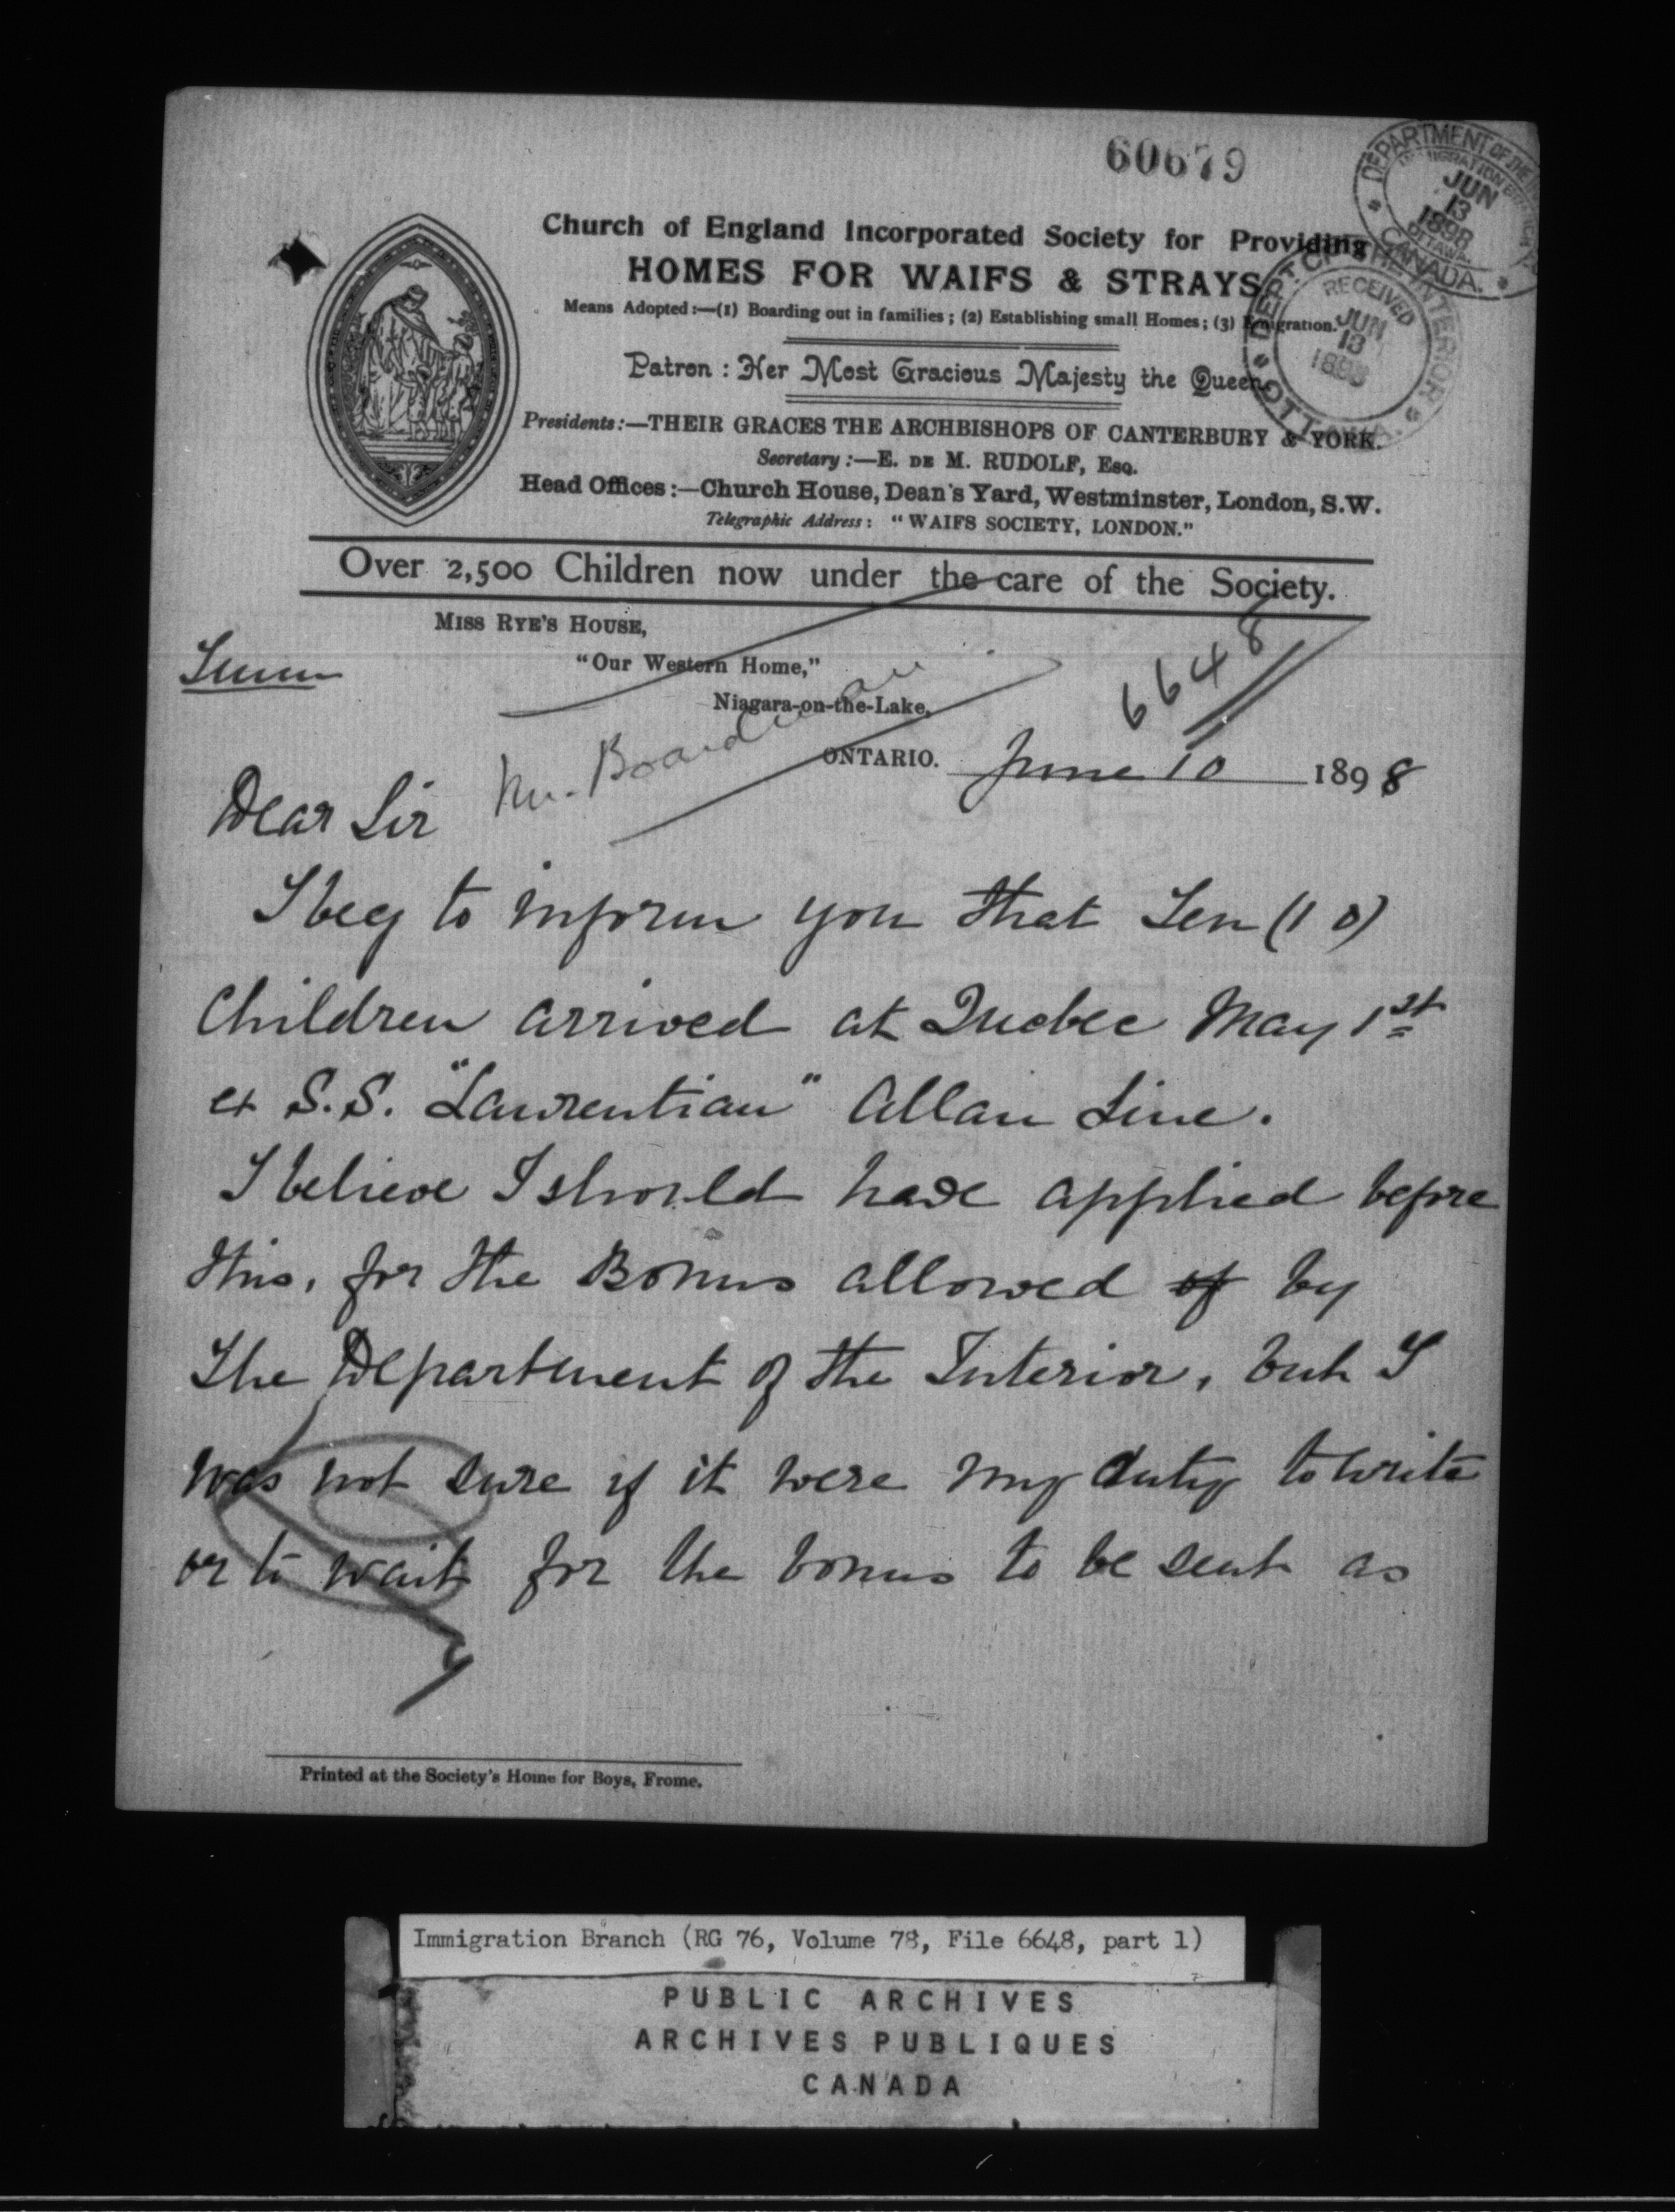 60679
DEPARTMENT OF THE
IMMIGRATION
JUN
13
1898
OTTAWA.
CANADA.
Church of England Incorporated Society for Providing
HOMES FOR WAIFS & STRAYS
Means Adopted:—(1) Boarding out in families; (2) Establishing small Homes; (3) Emigration.
DEPT. OF THE INTERIOR
RECEIVED
JUN
13
1898
OTTAWA.
Patron: Her Most Gracious Majesty the Queen
Presidents:—THEIR GRACES THE ARCHBISHOPS OF CANTERBURY & YORK.
Secretary:—E. DE M. RUDOLF, ESQ.
Head Offices:—Church House, Dean's Yard, Westminster, London, S.W.
Telegraphic Address: "WAIFS SOCIETY, LONDON."
Over 2,500 Children now under the care of the Society.
MISS RYE'S HOUSE,
"Our Western Home,"
Niagara-on-the-Lake,
6648
Mr. Boardman
ONTARIO. June 10 1898
Dear Sir
I beg to inform you that Ten (10)
Children arrived at Quebec May 1st
ex S.S. "Laurentian" Allan Line.
I believe I should have applied before
this, for the Bonus allowed of by
the Department of the Interior, but I
was not sure if it were my duty to write
or to wait for the bonus to be sent as
Printed at the Society's Home for Boys, Frome.
Immigration Branch (RG 76, Volume 78, File 6648, part 1)
PUBLIC ARCHIVES
ARCHIVES PUBLIQUES
CANADA